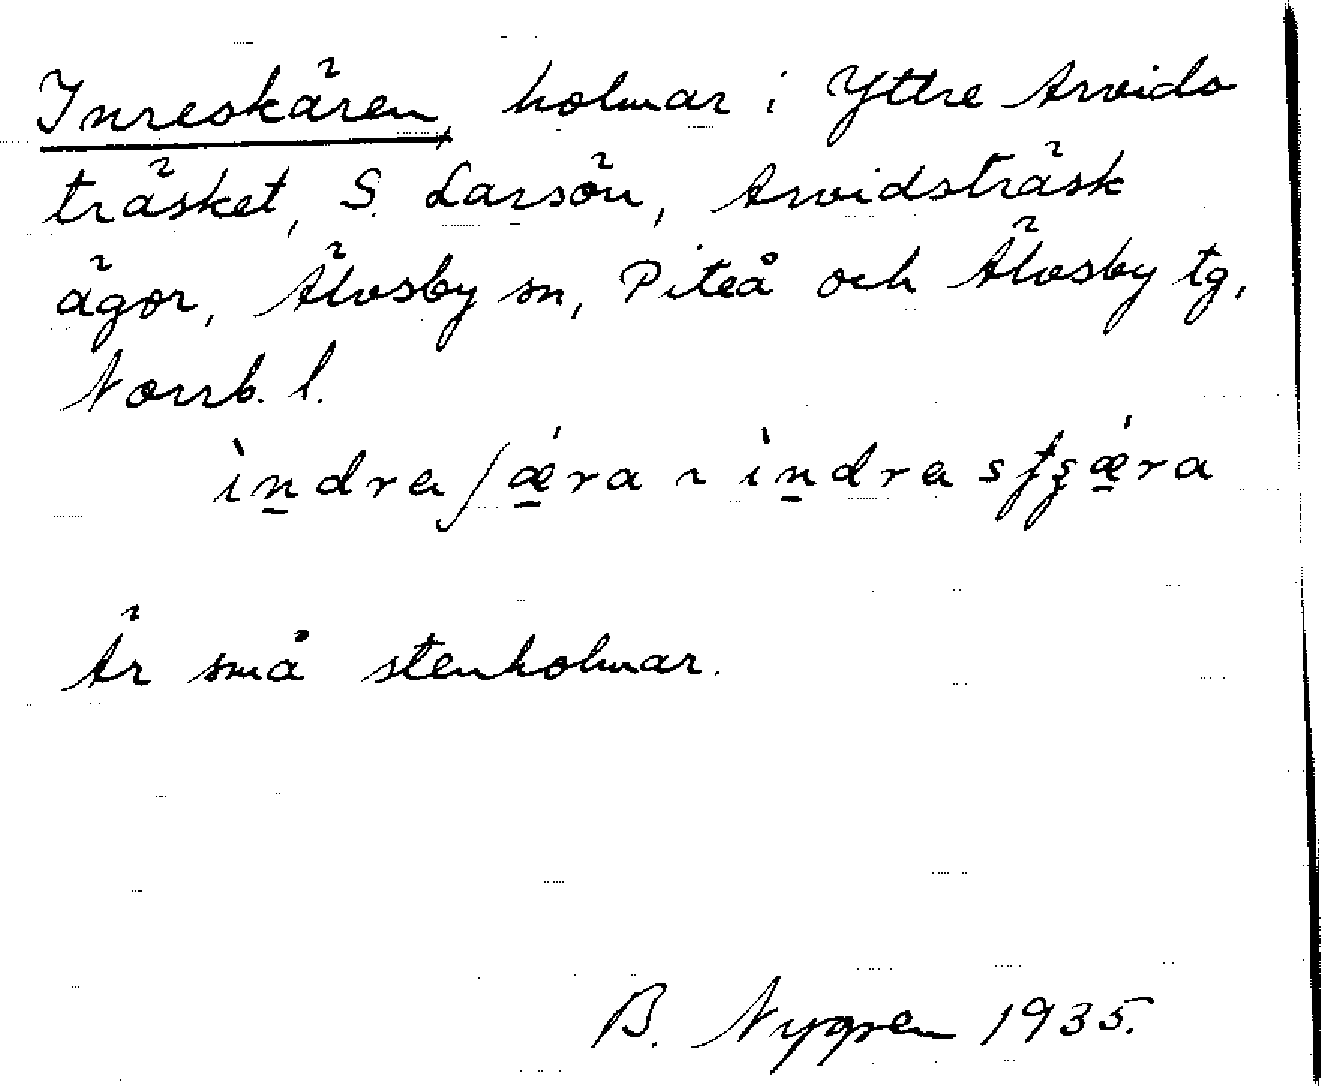 Inreskären, holmar i Yttre Arvids
träsket, S. Larsön, Arvidsträsk
ägor, Älvsby sn, Piteå och Älvsby tg,
Norrb. l.
ìn̲draʃǽ̲ra ~ ìn̲drasʈʂǽ̲ra
Är små stenholmar.
B. Nygren 1935.